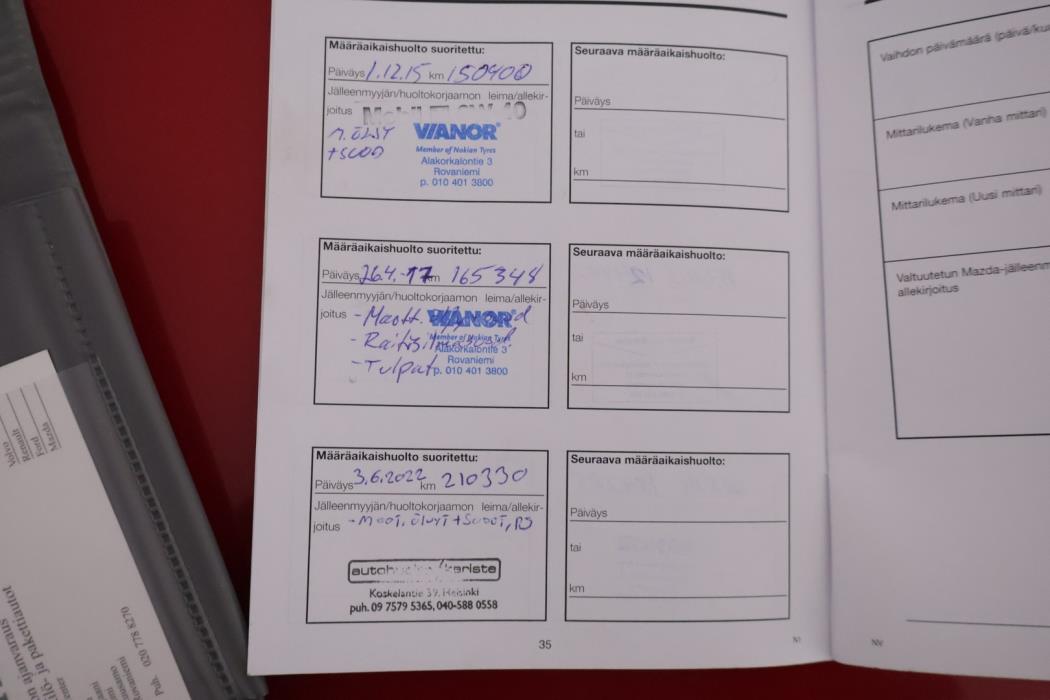 Määräaikaishuolto suoritettu:
Päiväys 1.12.15 km 150400
Jälleenmyyjän/huoltokorjaamon leima/allekir-
joitus
VIANOR
Member of Nokian Tyres
Alakorkalontie 3
Rovaniemi
p. 010 401 3800
Seuraava määräaikaishuolto:
Päiväys
tai
km
Määräaikaishuolto suoritettu:
Päiväys 26.4.-17 km 165348
Jälleenmyyjän/huoltokorjaamon leima/allekir-
joitus
VIANOR
Member of Nokian Tyres
Alakorkalontie 3
Rovaniemi
- Tulpat p. 010 401 3800
Seuraava määräaikaishuolto:
Päiväys
tai
km
Määräaikaishuolto suoritettu:
Päiväys 3.6.2022 km 210330
Jälleenmyyjän/huoltokorjaamon leima/allekir-
joitus
Koskelantie 39, Helsinki
puh. 09 7579 5365, 040-588 0558
Seuraava määräaikaishuolto:
Päiväys
tai
km
35
N1
Vaihdon päivämäärä (päivä/
Mittarilukema (Vanha mittari)
Mittarilukema (Uusi mittari)
Valtuutetun Mazda-
allekirjoitus
Volvo
Renault
Ford
Mazda
ajanvaraus
ja pakettiautot
Puh. 020 778 8270